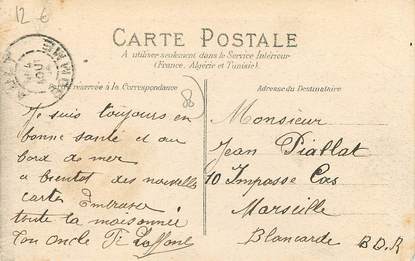 12 €
CARTE POSTALE
A utiliser seulement dans le Service Intérieur
(France, Algérie et Tunisie).
réservée à la Correspondance
Adresse du Destinataire
86
Je suis toujours en
bonne santé et au
bord de mer
a bientot des nouvelles
cartes Embrasse
toute la maisonnée
Ton oncle
Monsieur
Jean Piallat
10 Impasse Cas
Marseille
Blancarde B.D.R